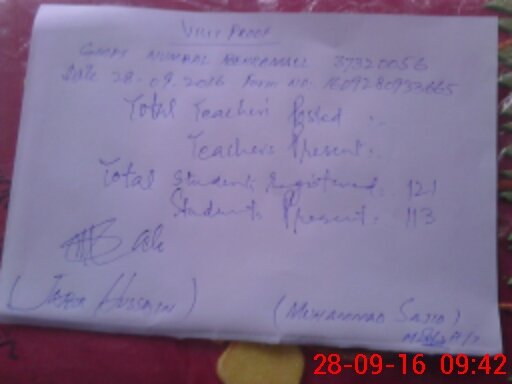 VISIT PROOF
GGHPS 37320056
Date 28-09-2016 Form No. 1609280933665
Total Teachers Posted :-
Teachers Present:-
Total Students Registered. 121
Students Present. 113
(Jaffar Hussain) (Muhammad Sajid)
28-09-16 09:42